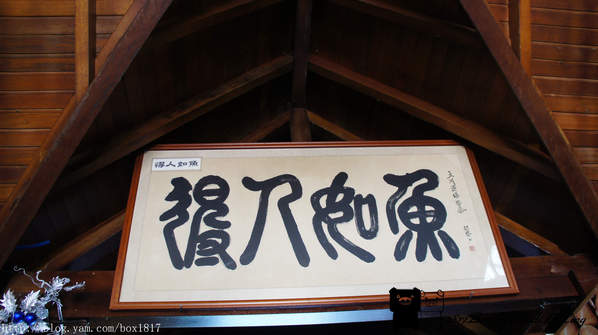 得人如魚
得人如魚
http://blog.yam.com/box1817